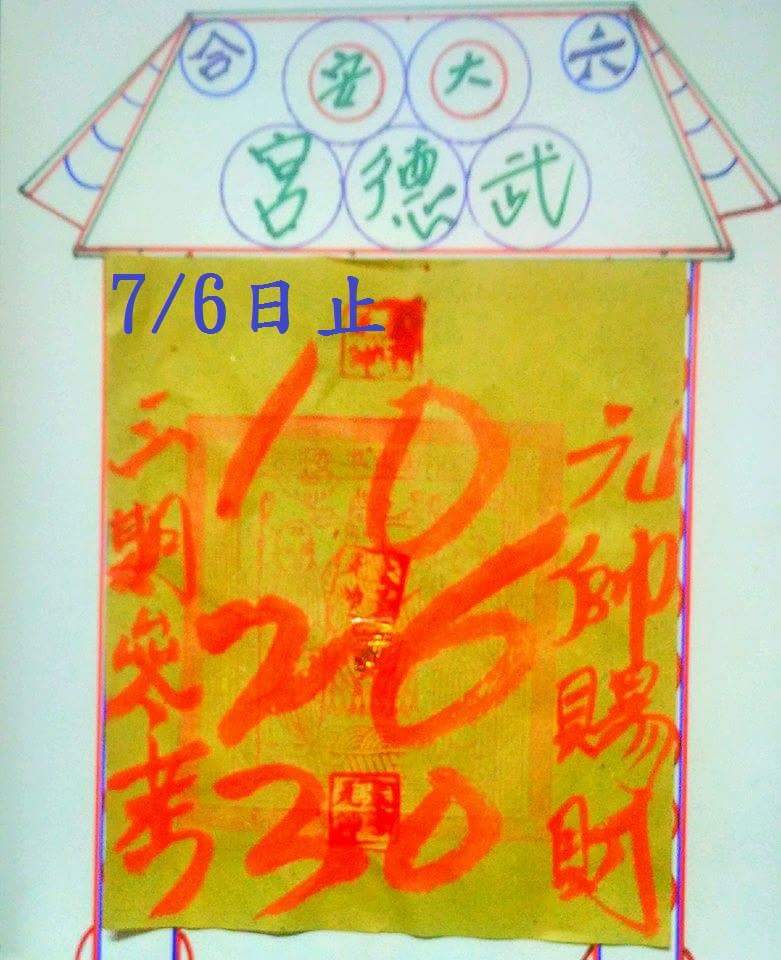 六合
大安
武德宮
7/6日止
元帥賜財
10
26
30
三期參考